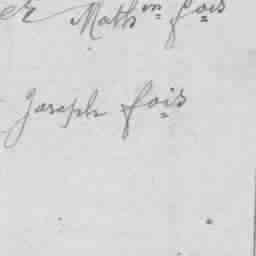 er Math^in fois
Joseph fois